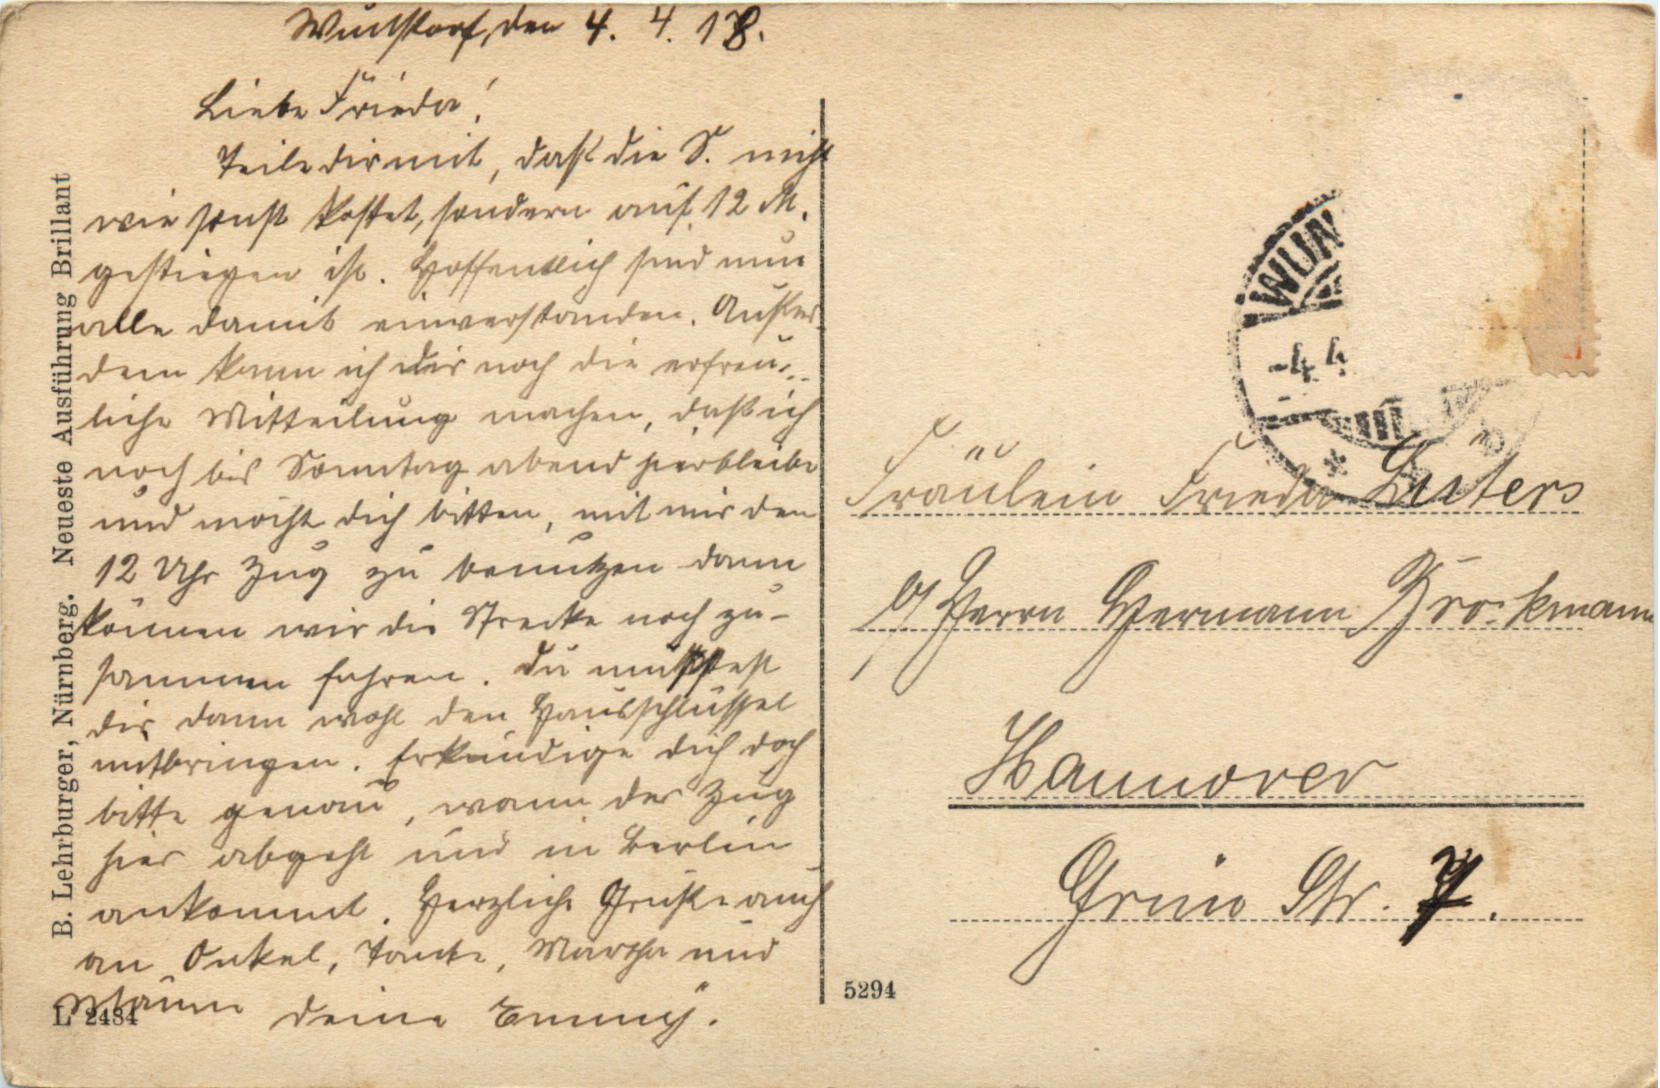 Wunstorf, den 4. 4. 18.
Liebe Frieda!
Teile dir mit, daß die S. nicht
wie sonst kostet, sondern auf 12 M.
gestiegen ist. Hoffentlich sind nun
alle damit einverstanden. Außer
dem kann ich dir noch die erfreu-
liche Mitteilung machen, daß ich
noch bis Sonntag abend hierbleibe
und möcht dich bitten, mit mir den
12 Uhr Zug zu benutzen dann
können wir die Strecke noch zu-
sammen fahren. Du müßtest
dir dann wohl den Hausschlüssel
mitbringen. Erkundige dich doch
bitte genau, wann der Zug
hier abgeht und in Berlin
ankommt. Herzliche Grüße auch
an Onkel, Tante, Martha und
deine Emmy.
B. Lehrburger, Nürnberg. Neueste Ausführung Brillant
L 2484
5294
WUN
-4. 4
Fräulein Frieda Lüters
Herrn Hermann Brockmann
Hannover
Str. 7.